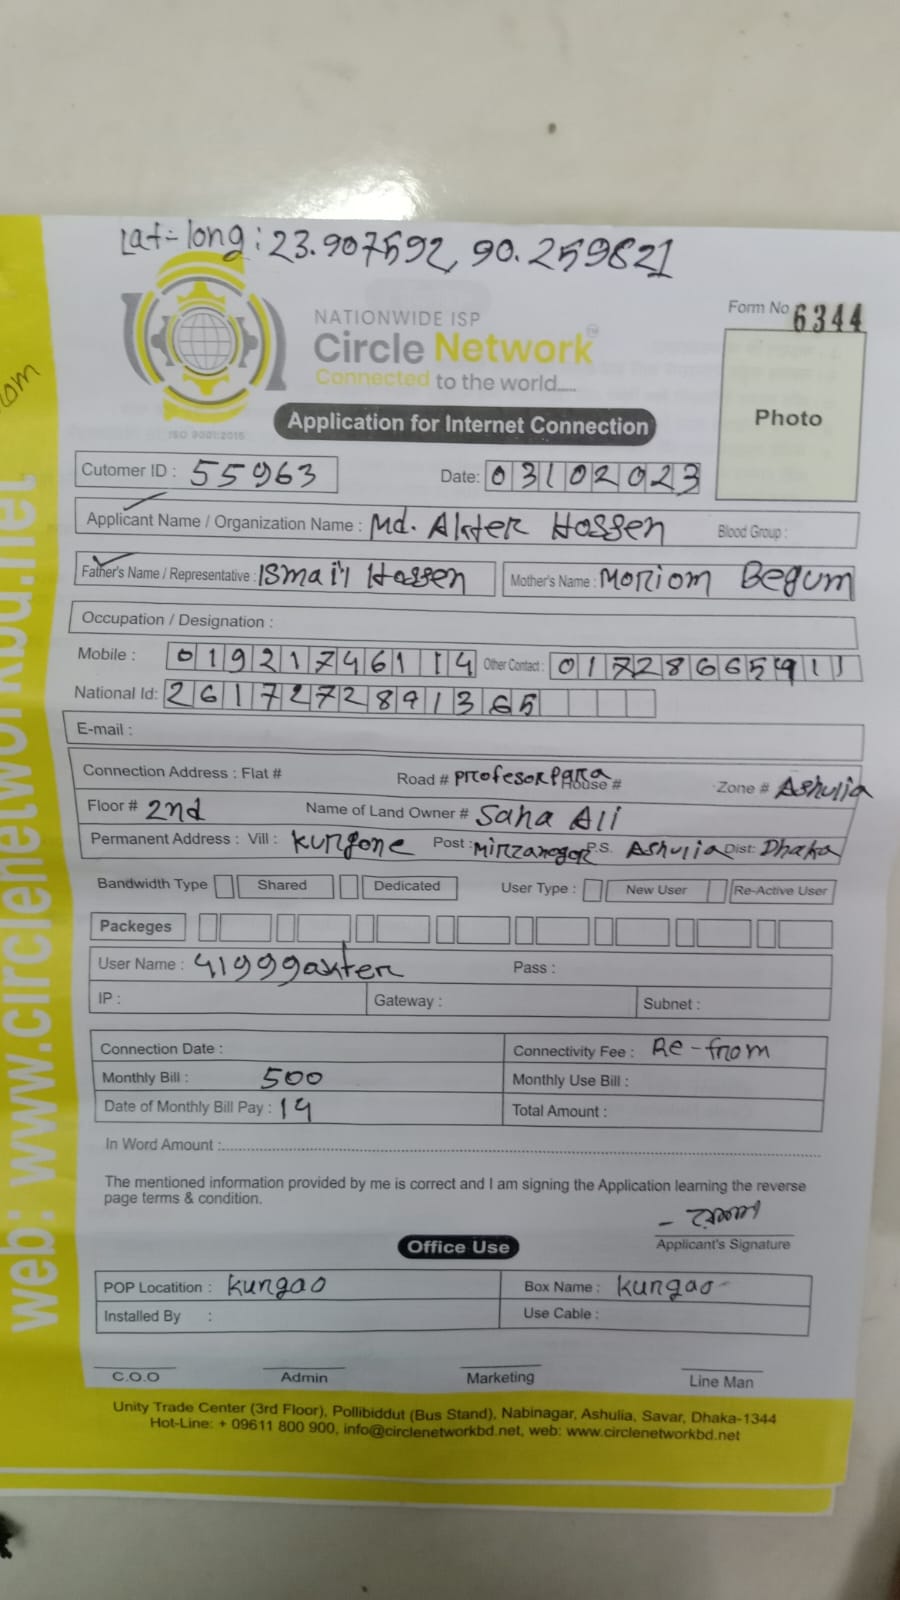 Lat-long: 23.907592, 90.259821
NATIONWIDE ISP
Form No 6344
Circle Network
Connected to the world.....
ISO 9001:2015
Photo
Application for Internet Connection
Cutomer ID : 55963 Date: 03/02023
Applicant Name / Organization Name : Md. Akter Hossen Blood Group :
Father's Name / Representative : Ismail Hossen Mother's Name : Moriom Begum
Occupation / Designation :
Mobile : 01921746114 Other Contact : 01728665911
National Id: 2617272891365
E-mail :
Connection Address : Flat # Road # Profesor para House # Zone # Ashulia
Floor # 2nd Name of Land Owner # Saha Ali
Permanent Address : Vill : kungone Post : Mirzanagor P.S. Ashulia Dist: Dhaka
Bandwidth Type Shared Dedicated User Type : New User Re-Active User
Packeges
User Name : 41999akter Pass :
IP : Gateway : Subnet :
Connection Date : Connectivity Fee : Re-from
Monthly Bill : 500 Monthly Use Bill :
Date of Monthly Bill Pay : 14 Total Amount :
In Word Amount :
The mentioned information provided by me is correct and I am signing the Application learning the reverse
page terms & condition.
Applicant's Signature
Office Use
POP Locatition : Kungao Box Name : Kungao
Installed By : Use Cable :
C.O.O Admin Marketing Line Man
Unity Trade Center (3rd Floor), Pollibiddut (Bus Stand), Nabinagar, Ashulia, Savar, Dhaka-1344
Hot-Line: + 09611 800 900, info@circlenetworkbd.net, web: www.circlenetworkbd.net
web: www.circlenetworkbd.net